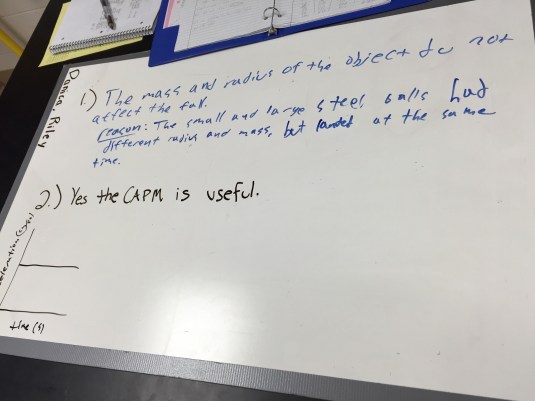 Danica, Riley
1.) The mass and radius of the object do not
affect the fall.
reason: The small and large steel balls had
different radius and mass, but landed at the same
time.
2.) Yes the CAPM is useful.
time (s)